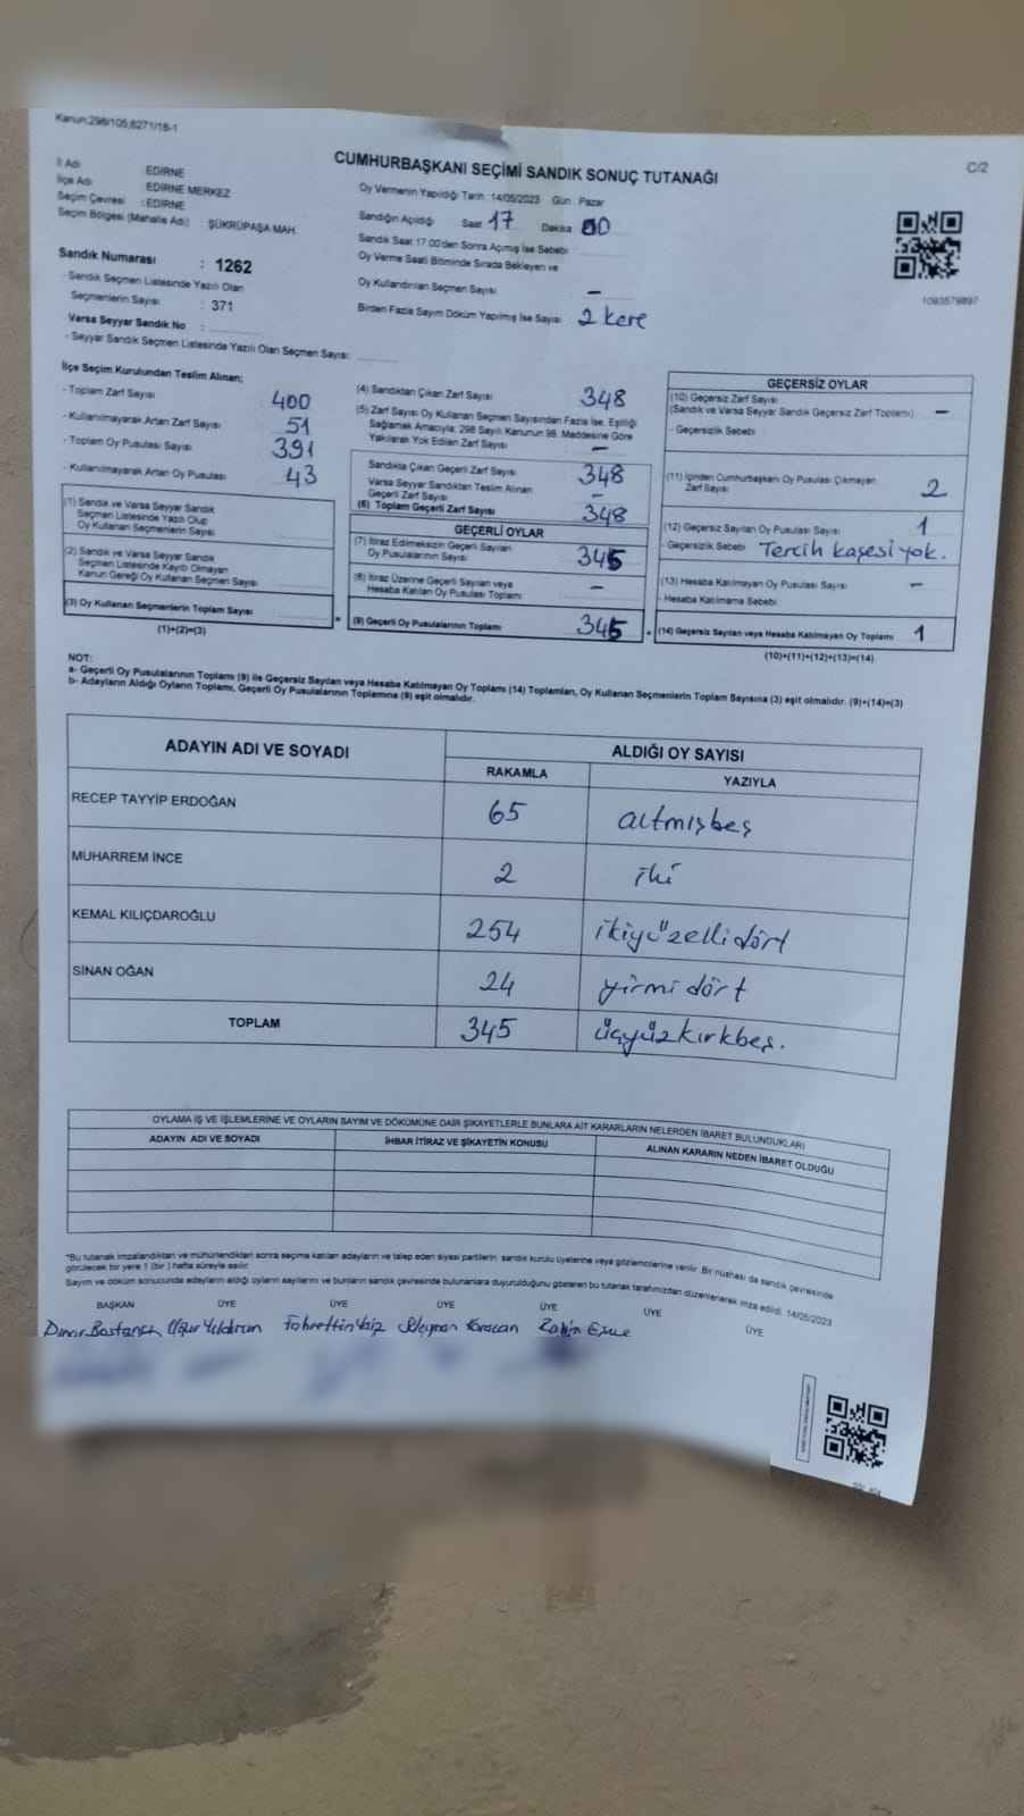 Kanun:298/105,6271/18-1
C/2
CUMHURBAŞKANI SEÇİMİ SANDIK SONUÇ TUTANAĞI
İl Adı EDİRNE
İlçe Adı EDİRNE MERKEZ
Seçim Çevresi : EDİRNE
Seçim Bölgesi (Mahalle Adı) : ŞÜKRÜPAŞA MAH.
Oy Vermenin Yapıldığı Tarih : 14/05/2023 Gün : Pazar
Sandığın Açıldığı Saat 17 Dakika 00
Sandık Saat 17.00'den Sonra Açılmış İse Sebebi
Oy Verme Saati Bitiminde Sırada Bekleyen ve
Oy Kullandırılan Seçmen Sayısı –
Birden Fazla Sayım Döküm Yapılmış İse Sayısı 2 kere
1093579897
Sandık Numarası : 1262
- Sandık Seçmen Listesinde Yazılı Olan
Seçmenlerin Sayısı : 371
Varsa Seyyar Sandık No :
- Seyyar Sandık Seçmen Listesinde Yazılı Olan Seçmen Sayısı:
İlçe Seçim Kurulundan Teslim Alınan;
- Toplam Zarf Sayısı 400
- Kullanılmayarak Artan Zarf Sayısı 51
- Toplam Oy Pusulası Sayısı 391
- Kullanılmayarak Artan Oy Pusulası 43
(1) Sandık ve Varsa Seyyar Sandık
Seçmen Listesinde Yazılı Olup
Oy Kullanan Seçmenlerin Sayısı
(2) Sandık ve Varsa Seyyar Sandık
Seçmen Listesinde Kayıtlı Olmayan
Kanun Gereği Oy Kullanan Seçmen Sayısı
(3) Oy Kullanan Seçmenlerin Toplam Sayısı
(1)+(2)=(3)
(4) Sandıktan Çıkan Zarf Sayısı 348
(5) Zarf Sayısı Oy Kullanan Seçmen Sayısından Fazla İse, Eşitliği
Sağlamak Amacıyla; 298 Sayılı Kanunun 98. Maddesine Göre
Yakılarak Yok Edilen Zarf Sayısı –
Sandıkta Çıkan Geçerli Zarf Sayısı 348
Varsa Seyyar Sandıktan Teslim Alınan
Geçerli Zarf Sayısı –
(6) Toplam Geçerli Zarf Sayısı 348
GEÇERLİ OYLAR
(7) İtiraz Edilmeksizin Geçerli Sayılan
Oy Pusulalarının Sayısı 345
(8) İtiraz Üzerine Geçerli Sayılan veya
Hesaba Katılan Oy Pusulası Toplamı –
(9) Geçerli Oy Pusulalarının Toplamı 345
GEÇERSİZ OYLAR
(10) Geçersiz Zarf Sayısı
(Sandık ve Varsa Seyyar Sandık Geçersiz Zarf Toplamı) –
- Geçersizlik Sebebi
(11) İçinden Cumhurbaşkanı Oy Pusulası Çıkmayan
Zarf Sayısı 2
(12) Geçersiz Sayılan Oy Pusulası Sayısı 1
- Geçersizlik Sebebi Tercih kaşesi yok.
(13) Hesaba Katılmayan Oy Pusulası Sayısı –
- Hesaba Katılmama Sebebi
(14) Geçersiz Sayılan veya Hesaba Katılmayan Oy Toplamı 1
(10)+(11)+(12)+(13)=(14)
NOT:
a- Geçerli Oy Pusulalarının Toplamı (9) ile Geçersiz Sayılan veya Hesaba Katılmayan Oy Toplamı (14) Toplamları, Oy Kullanan Seçmenlerin Toplam Sayısına (3) eşit olmalıdır. (9)+(14)=(3)
b- Adayların Aldığı Oyların Toplamı, Geçerli Oy Pusulalarının Toplamına (9) eşit olmalıdır.
ADAYIN ADI VE SOYADI ALDIĞI OY SAYISI
RAKAMLA YAZIYLA
RECEP TAYYİP ERDOĞAN 65 altmışbeş
MUHARREM İNCE 2 iki
KEMAL KILIÇDAROĞLU 254 ikiyüzellidört
SİNAN OĞAN 24 yirmidört
TOPLAM 345 üçyüzkırkbeş.
OYLAMA İŞ VE İŞLEMLERİNE VE OYLARIN SAYIM VE DÖKÜMÜNE DAİR ŞİKAYETLERLE BUNLARA AİT KARARLARIN NELERDEN İBARET BULUNDUKLARI
ADAYIN ADI VE SOYADI İHBAR İTİRAZ VE ŞİKAYETİN KONUSU ALINAN KARARIN NEDEN İBARET OLDUĞU
"Bu tutanak imzalandıktan ve mühürlendikten sonra seçime katılan adayların ve talep eden siyasi partilerin, sandık kurulu üyelerine veya gözlemcilerine verilir. Bir nüshası da sandık çevresinde
görülecek bir yere 1 (bir) hafta süreyle asılır.
Sayım ve döküm sonucunda adayların aldığı oyların sayılarını ve bunların sandık çevresinde bulunanlara duyurulduğunu gösteren bu tutanak tarafımızdan düzenlenerek imza edildi. 14/05/2023
BAŞKAN ÜYE ÜYE ÜYE ÜYE ÜYE ÜYE
Uğur Yıldırım Fahrettin Süleyman Karacan